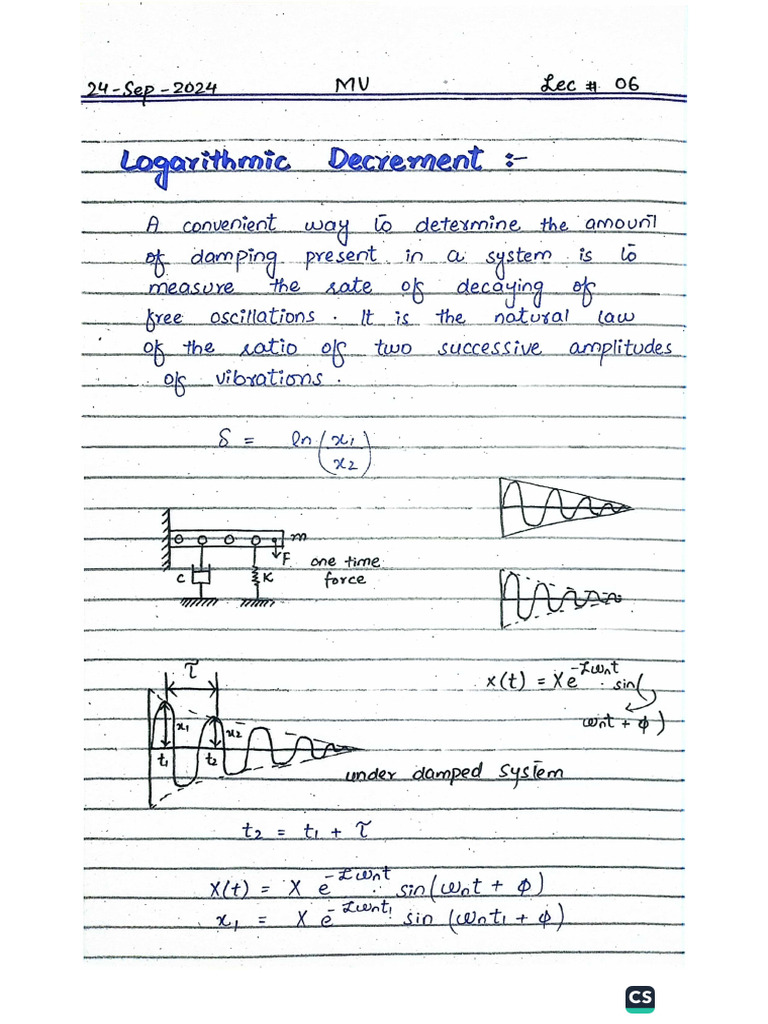 24-Sep-2024 MV Lec # 06
Logarithmic Decrement :-
A convenient way to determine the amount
of damping present in a system is to
measure the rate of decaying of
free oscillations. It is the natural law
of the ratio of two successive amplitudes
of vibrations.
δ = ln(x₁/x₂)
m
F one time
C K force
τ
x(t) = Xe^-ζωnt . sin(
ωnt + φ)
x₁ x₂
t₁ t₂
under damped system
t₂ = t₁ + τ
X(t) = X e^-ζωnt . sin(ωnt + φ)
x₁ = X e^-ζωnt₁ . sin (ωnt₁ + φ)
CS